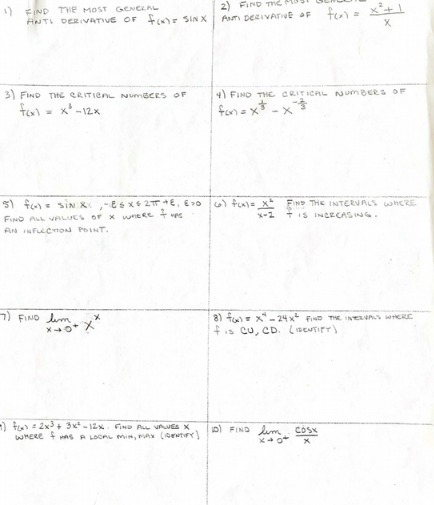 1) FIND THE MOST GENERAL
ANTI DERIVATIVE OF f(x) = SIN X
2) FIND THE MOST
ANTI DERIVATIVE OF f(x) = (x² + 1)/x
3) FIND THE CRITICAL NUMBERS OF
f(x) = x³ - 12x
4) FIND THE CRITICAL NUMBERS OF
5) f(x) = SIN X, -ε ≤ x ≤ 2π + ε, ε > 0
FIND ALL VALUES OF X WHERE f HAS
AN INFLECTION POINT.
6) f(x) = x²/(x-2) FIND THE INTERVALS WHERE
f IS INCREASING.
7) FIND lim x→0⁺ x^x
8) f(x) = x⁴ - 24x² FIND THE INTERVALS WHERE
f IS CU, CD. (IDENTIFY)
) f(x) = 2x³ + 3x² - 12x. FIND ALL VALUES X
WHERE f HAS A LOCAL MIN, MAX (IDENTIFY)
10) FIND lim x→0⁺ COSX/x